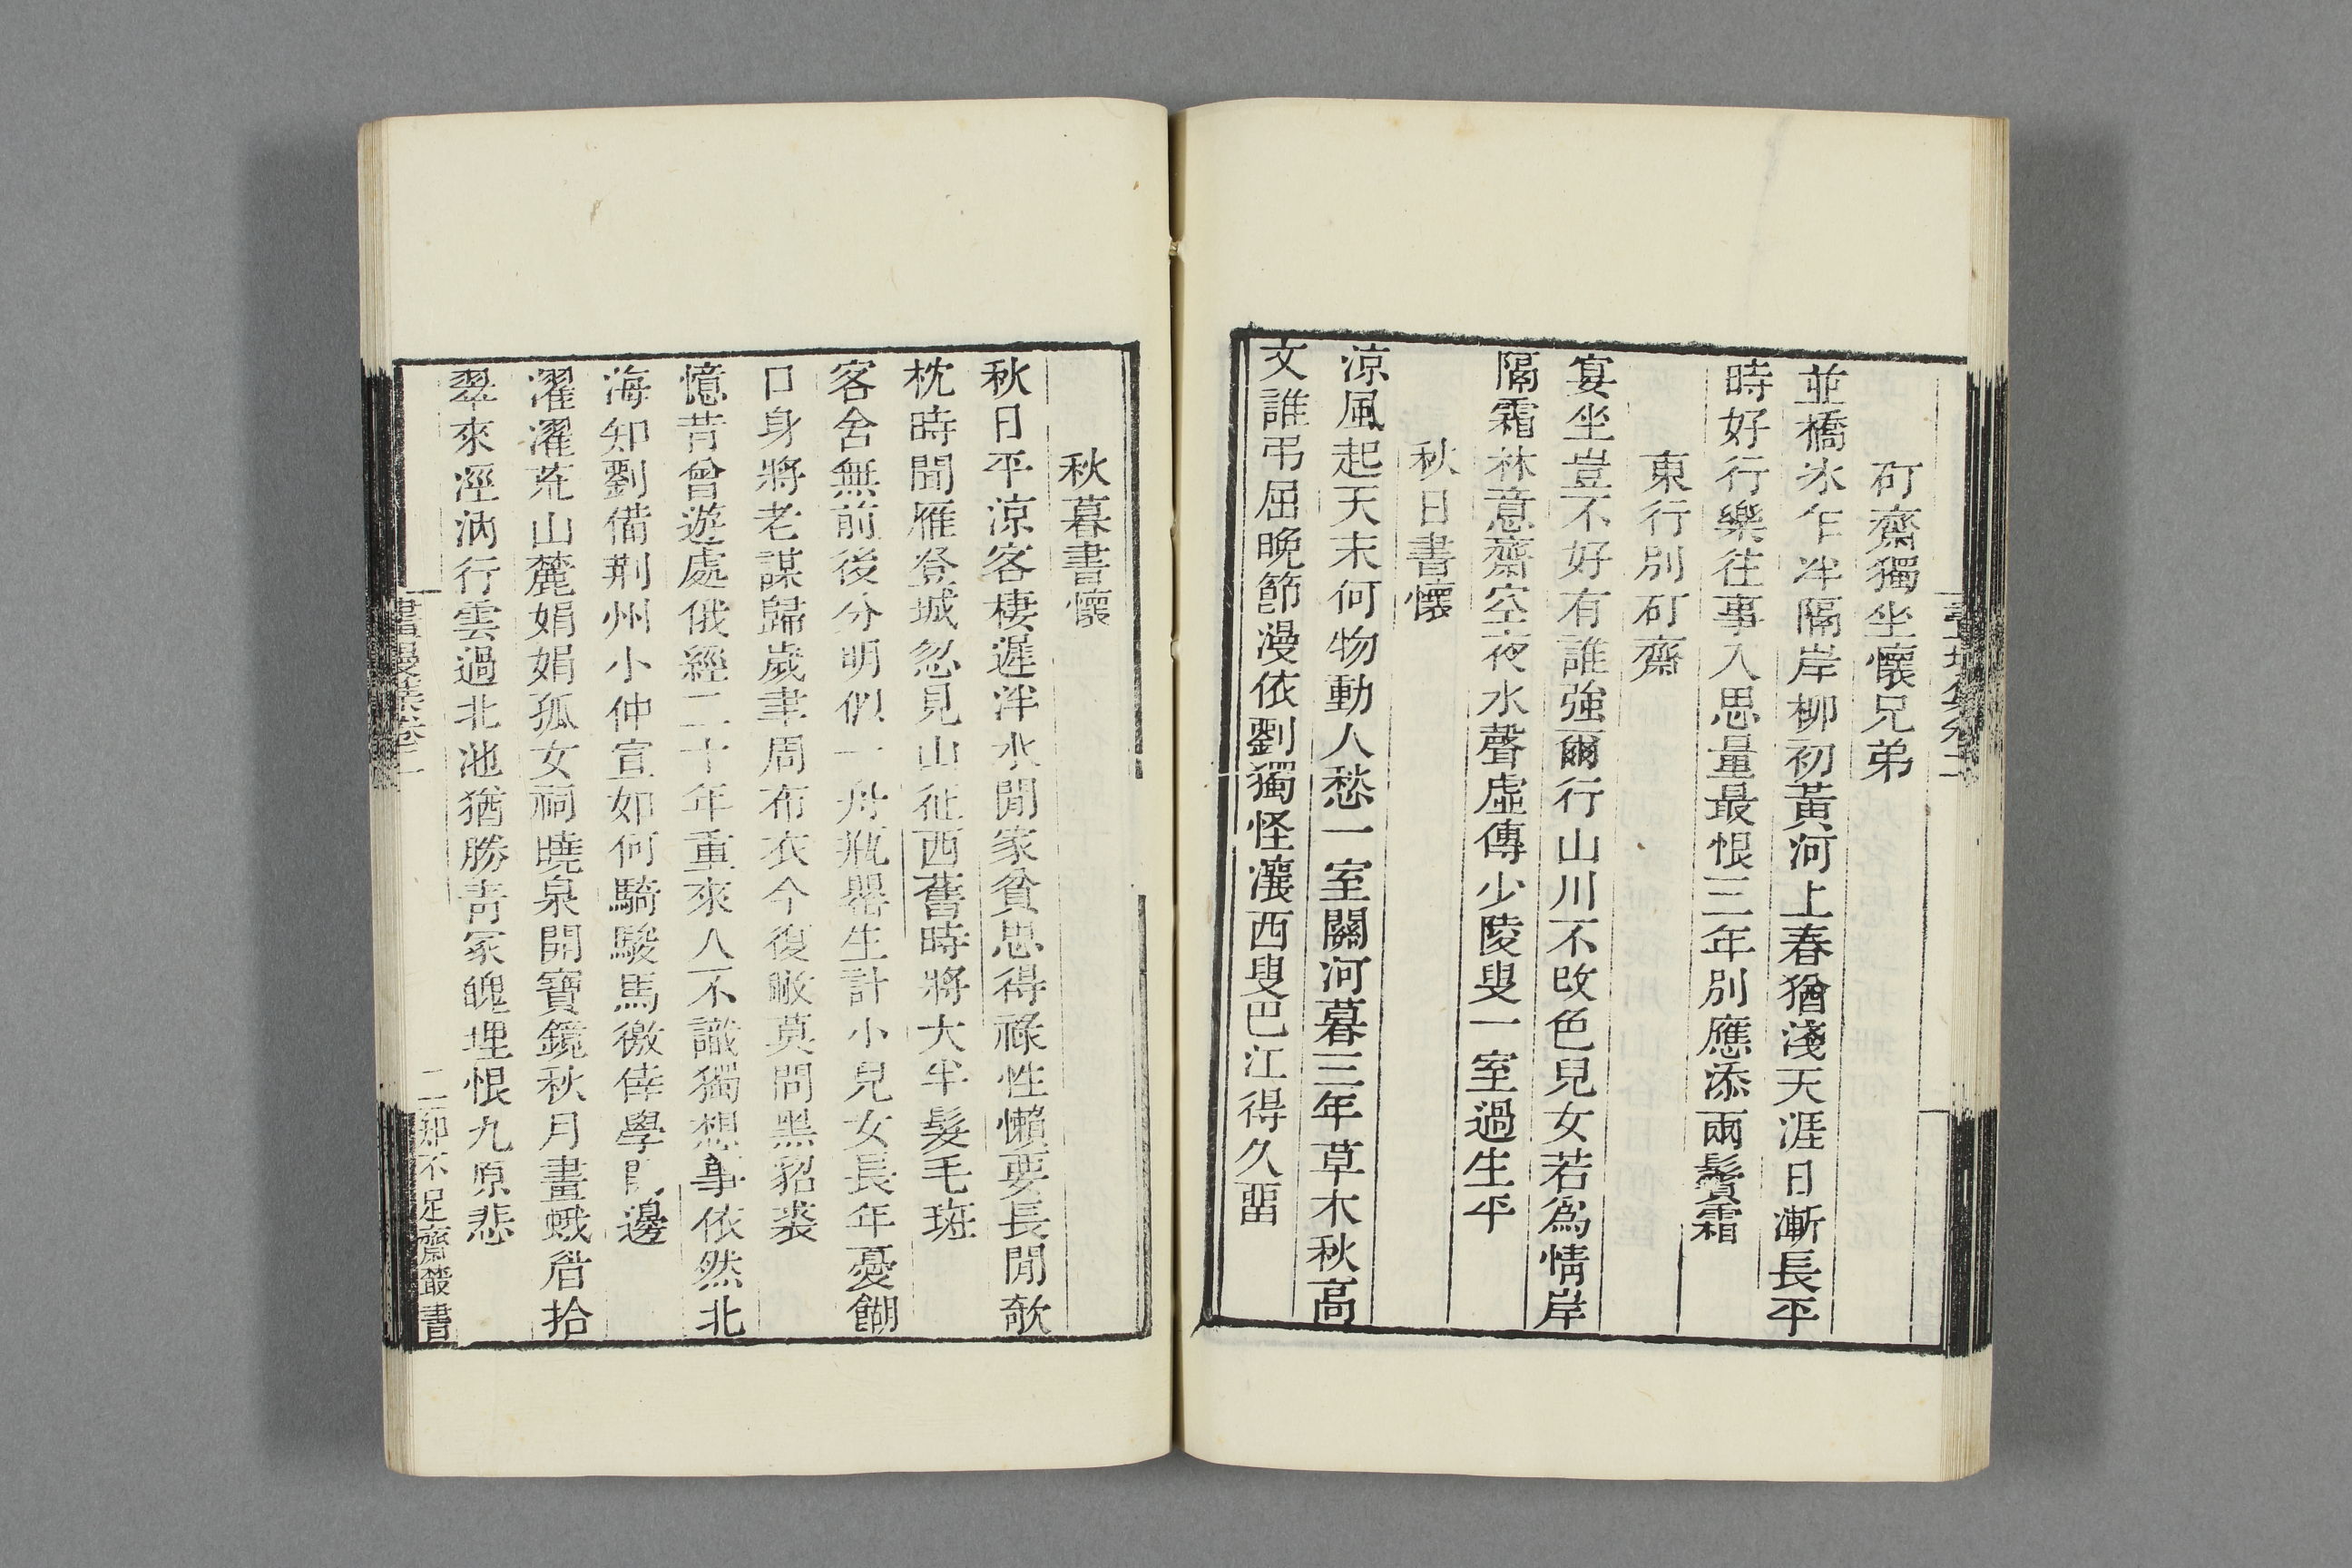 矴齋獨坐懷兄弟
並橋氷乍泮隔岸柳初黃河上春猶淺天涯日漸長平
時好行樂往事入思量最恨三年別應添兩鬢霜
東行別矴齋
宴坐豈不好有誰強爾行山川不改色兒女若爲情岸
隔霜林意齋空夜水聲虛傳少陵叟一室過生平
秋日書懷
涼風起天末何物動人愁一室關河暮三年草木秋高
文誰弔屈晚節漫依劉獨怪瀼西叟巴江得久畱
秋暮書懷
秋日平涼客棲遲泮水閒家貧思得祿性懶要長閒欹
枕時聞雁登城忽見山征西舊時將大半髮毛斑
客舍無前後分明似一舟瓶罌生計小兒女長年憂餬
口身將老謀歸歲聿周布衣今復敝莫問黑貂裘
憶昔曾遊處俄經二十年重來人不識獨想事依然北
海知劉備荆州小仲宣如何騎駿馬徼倖學邊
濯濯荒山麓娟娟孤女祠曉泉開寶鏡秋月畫蛾眉拾
翠來涇汭行雲過北池猶勝靑冢魄埋恨九原悲
二知不足齋叢書